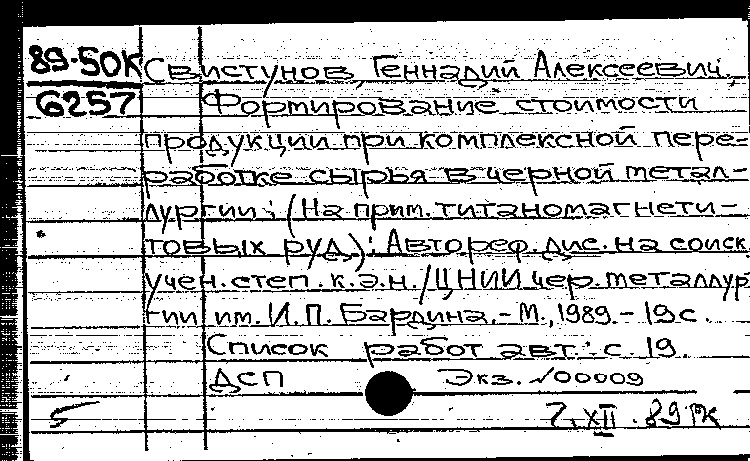 89-50К Свистунов, Геннадий Алексеевич.
6257 Формирование стоимости
продукции при комплексной пере-
работке сырья в черной метал-
лургии: (На прим. титаномагнети-
товых руд): Автореф. дис. на соиск
учен. степ. к.э.н. / ЦНИИ чер. металлур
гии им. И.П. Бардина. - М., 1989. - 19 с.
Список работ авт.: с. 19.
ДСП Экз. №00009
5 7.XII.89 РК